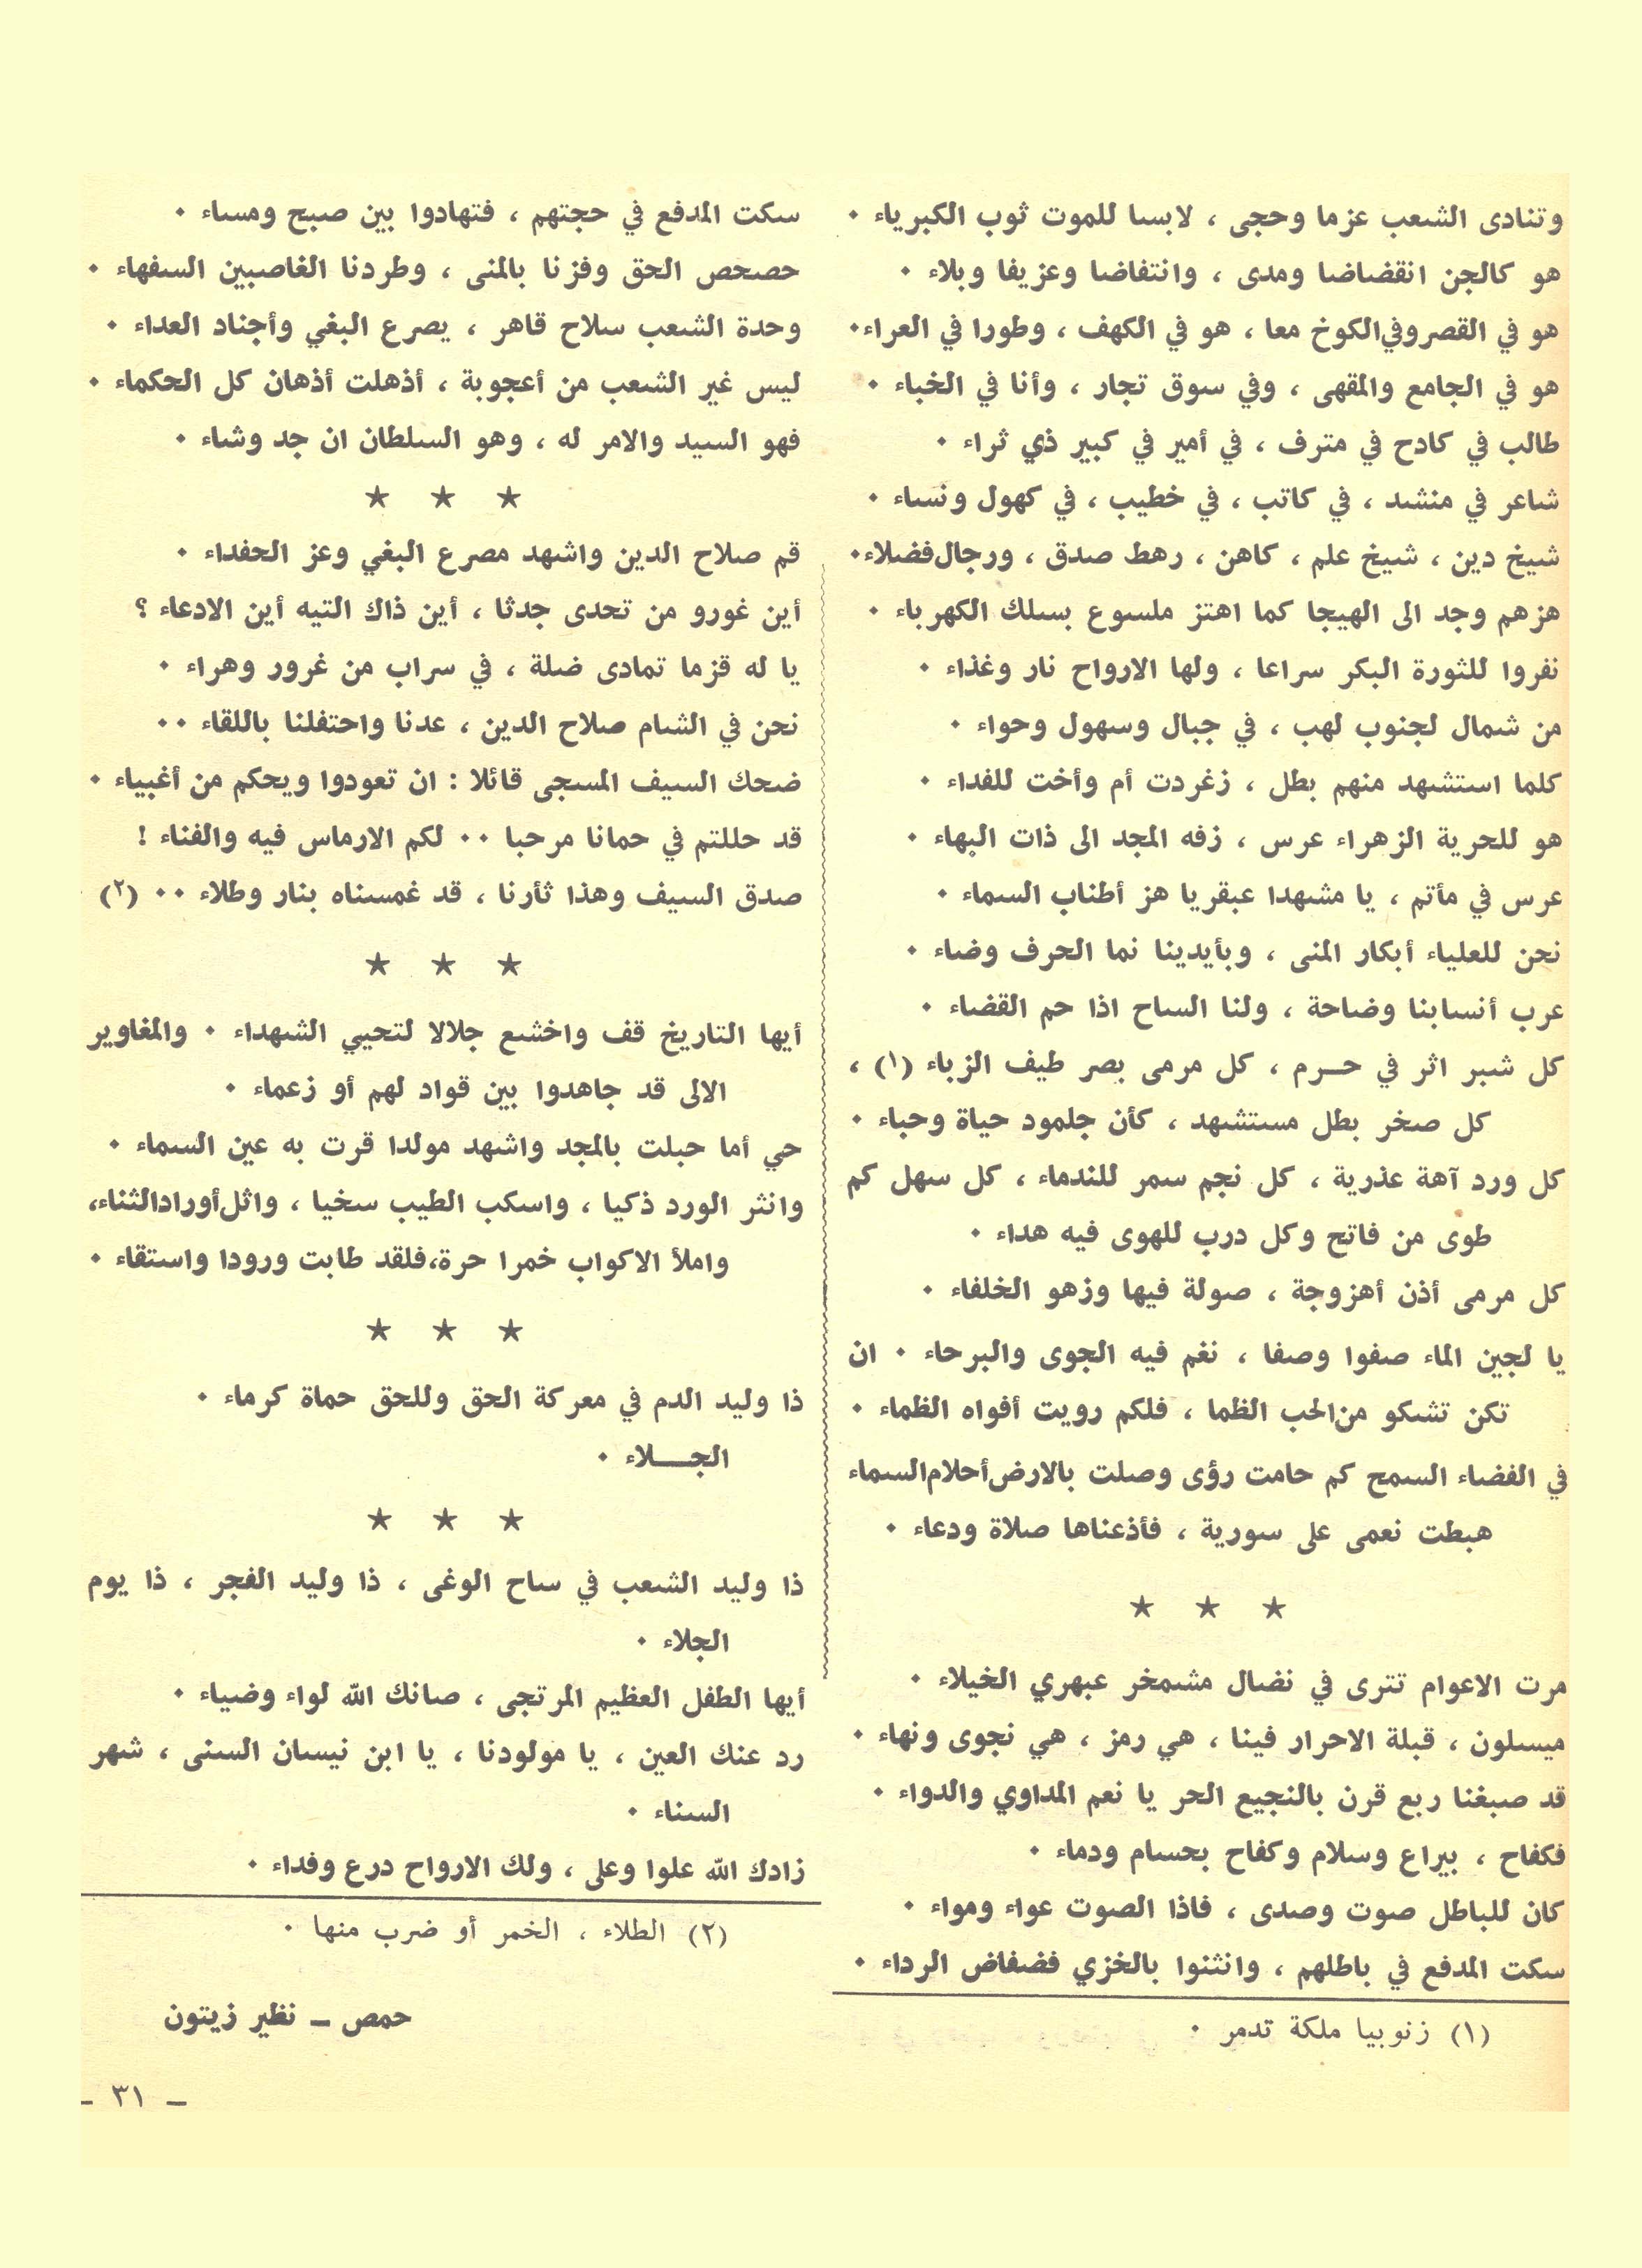 وتنادى الشعب عزما وحجى ، لابسا للموت ثوب الكبرياء ٠
هو كالجن انقضاضا ومدى ، وانتفاضا وعزيفا وبلاء ٠
هو في القصر وفي الكوخ معا ، هو في الكهف ، وطورا في العراء ٠
هو في الجامع والمقهى ، وفي سوق تجار ، وأنا في الخباء ٠
طالب في كادح في مترف ، في أمير في كبير ذي ثراء ٠
شاعر في منشد ، في كاتب ، في خطيب ، في كهول ونساء ٠
شيخ دين ، شيخ علم ، كاهن ، رهط صدق ، ورجال فضلاء ٠
هزهم وجد الى الهيجا كما اهتز ملسوع بسلك الكهرباء ٠
نفروا للثورة البكر سراعا ، ولها الارواح نار وغذاء ٠
من شمال لجنوب لهب ، في جبال وسهول وحواء ٠
كلما استشهد منهم بطل ، زغردت أم وأخت للفداء ٠
هو للحرية الزهراء عرس ، زفه المجد الى ذات البهاء ٠
عرس في مأتم ، يا مشهدا عبقريا هز أطناب السماء ٠
نحن للعلياء أبكار المنى ، وبأيدينا نما الحرف وضاء ٠
عرب أنسابنا وضاحة ، ولنا الساح اذا حم القضاء ٠
كل شبر اثر في حـرم ، كل مرمى بصر طيف الزباء (١) ،
كل صخر بطل مستشهد ، كأن جلمود حياة وحباء ٠
كل ورد آهة عذرية ، كل نجم سمر للندماء ، كل سهل كم
طوى من فاتح وكل درب للهوى فيه هداء ٠
كل مرمى أذن أهزوجة ، صولة فيها وزهو الخلفاء ٠
يا لجين الماء صفوا وصفا ، نغم فيه الجوى والبرحاء ٠ ان
تكن تشكو من الحب الظما ، فلكم رويت أفواه الظماء ٠
في الفضاء السمح كم حامت رؤى وصلت بالارض أحلام السماء
هبطت نعمى على سورية ، فأذعناها صلاة ودعاء ٠
★ ★ ★
مرت الاعوام تترى في نضال مشمخر عبهري الخيلاء ٠
ميسلون ، قبلة الاحرار فينا ، هي رمز ، هي نجوى ونهاء ٠
قد صبغنا ربع قرن بالنجيع الحر يا نعم المداوي والدواء ٠
فكفاح ، بيراع وسلام وكفاح بحسام ودماء ٠
كان للباطل صوت وصدى ، فاذا الصوت عواء ومواء ٠
سكت المدفع في باطلهم ، وانثنوا بالخزي فضفاض الرداء ٠
(١) زنوبيا ملكة تدمر ٠
سكت المدفع في حجتهم ، فتهادوا بين صبح ومساء ٠
حصحص الحق وفزنا بالمنى ، وطردنا الغاصبين السفهاء ٠
وحدة الشعب سلاح قاهر ، يصرع البغي وأجناد العداء ٠
ليس غير الشعب من أعجوبة ، أذهلت أذهان كل الحكماء ٠
فهو السيد والامر له ، وهو السلطان ان جد وشاء ٠
★ ★ ★
قم صلاح الدين واشهد مصرع البغي وعز الحفداء ٠
أين غورو من تحدى جدثا ، أين ذاك التيه أين الادعاء ؟
يا له قزما تمادى ضلة ، في سراب من غرور وهراء ٠
نحن في الشام صلاح الدين ، عدنا واحتفلنا باللقاء ٠٠
ضحك السيف المسجى قائلا : ان تعودوا ويحكم من أغبياء ٠
قد حللتم في حمانا مرحبا ٠٠ لكم الارماس فيه والفناء !
صدق السيف وهذا ثأرنا ، قد غمسناه بنار وطلاء ٠٠ (٢)
★ ★ ★
أيها التاريخ قف واخشع جلالا لتحيي الشهداء ٠ والمغاوير
الالى قد جاهدوا بين قواد لهم أو زعماء ٠
حي أما حبلت بالمجد واشهد مولدا قرت به عين السماء ٠
وانثر الورد ذكيا ، واسكب الطيب سخيا ، واتل أوراد الثناء،
واملأ الاكواب خمرا حرة، فلقد طابت ورودا واستقاء ٠
★ ★ ★
ذا وليد الدم في معركة الحق وللحق حماة كرماء ٠
الجـــلاء ٠
★ ★ ★
ذا وليد الشعب في ساح الوغى ، ذا وليد الفجر ، ذا يوم
الجلاء ٠
أيها الطفل العظيم المرتجى ، صانك الله لواء وضياء ٠
رد عنك العين ، يا مولودنا ، يا ابن نيسان السنى ، شهر
السناء ٠
زادك الله علوا وعلى ، ولك الارواح درع وفداء ٠
(٢) الطلاء ، الخمر أو ضرب منها ٠
حمص – نظير زيتون
– ٣١ –